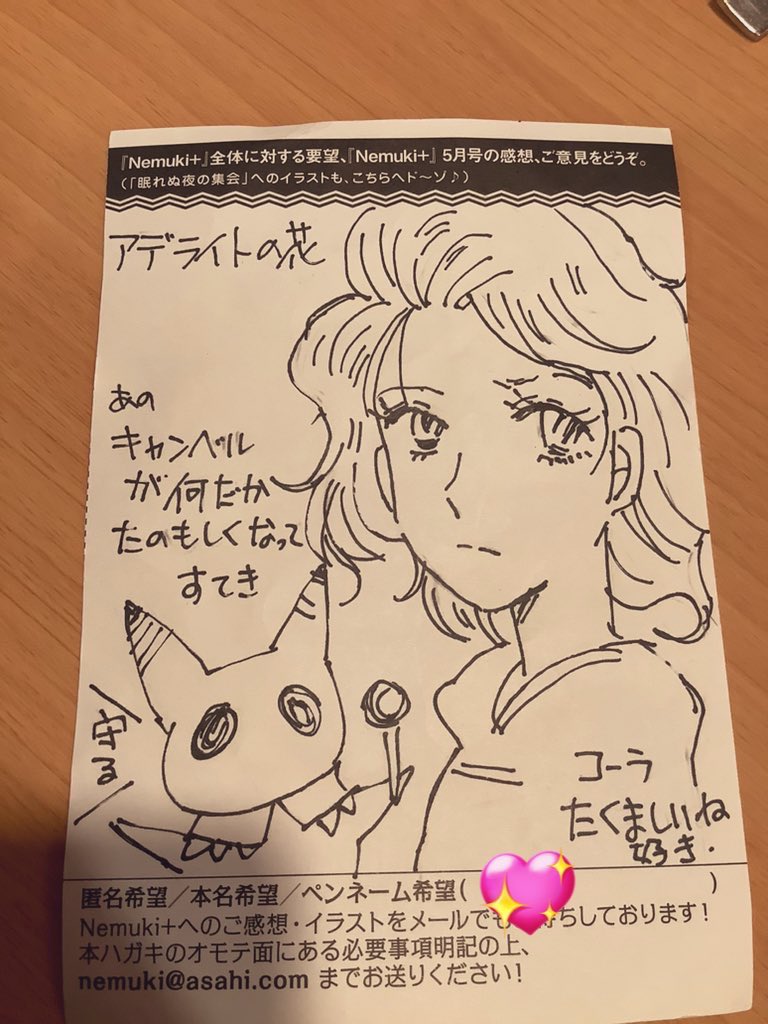 『Nemuki+』全体に対する要望、『Nemuki+』5月号の感想、ご意見をどうぞ。
(「眠れぬ夜の集会」へのイラストも、こちらへド〜ゾ♪)
アデライトの花
あの
キャンベル
が何だか
たのもしくなって
すてき
守る
コーラ
たくましいね
好き.
匿名希望/本名希望/ペンネーム希望( )
Nemuki+へのご感想・イラストをメールでも ちしております!
本ハガキのオモテ面にある必要事項明記の上、
nemuki@asahi.com までお送りください!